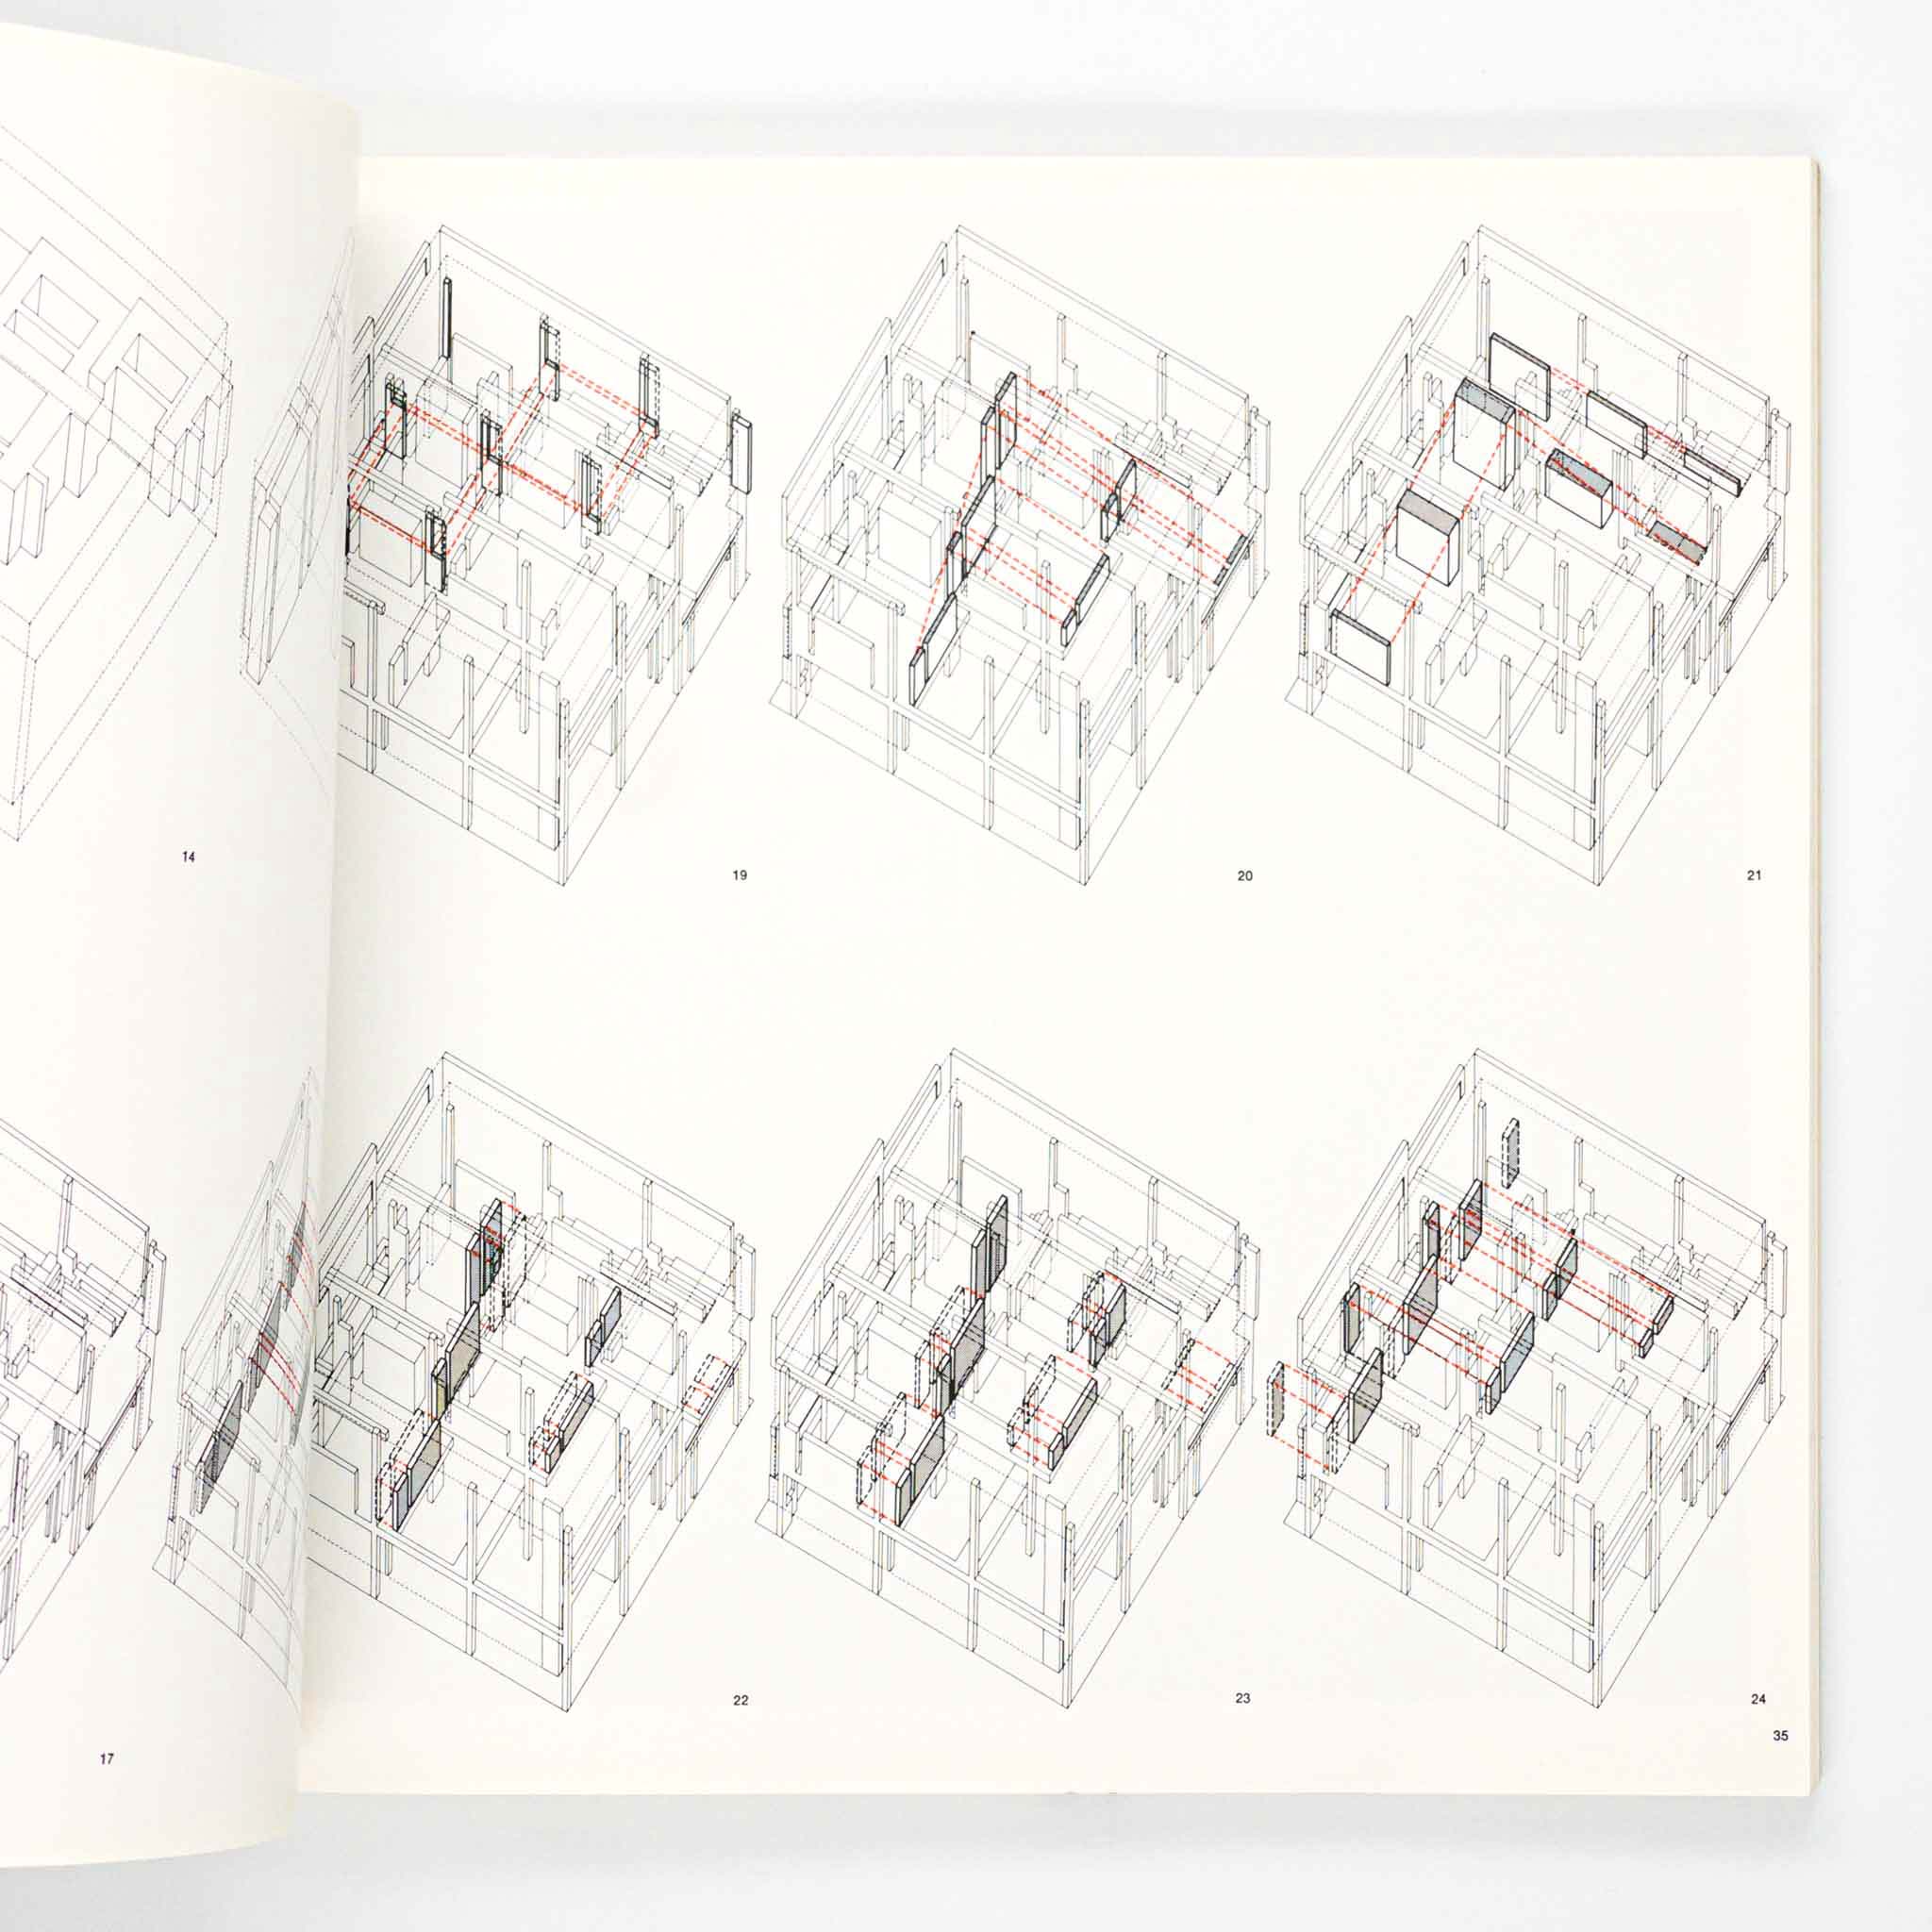 14
17
19
20
21
22
23
24
35